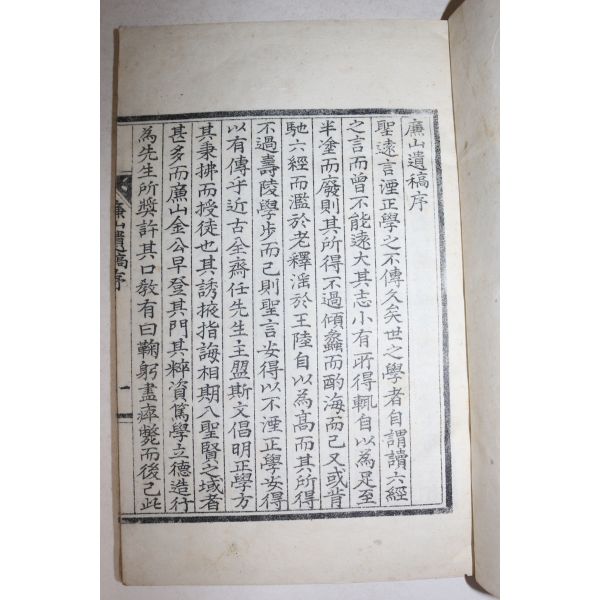 廉山遺稿序
聖遠言湮正學之不傳久矣世之學者自謂讀六經
之言而曾不能遠大其志小有所得輒自以為足至
半塗而廢則其所得不過傾蠡而酌海而已又或肯
馳六經而濫於老釋淫於王陸自以為高而其所得
不過壽陵學步而已則聖言安得以不湮正學安得
以有傳乎近古全齋任先生主盟斯文倡明正學方
其秉拂而授徒也其誘掖指誨相期入聖賢之域者
甚多而廉山金公早登其門其粹資篤學立德造行
為先生所奬許其口敎有曰鞠躬盡瘁斃而後已此
廉山遺稿序
一